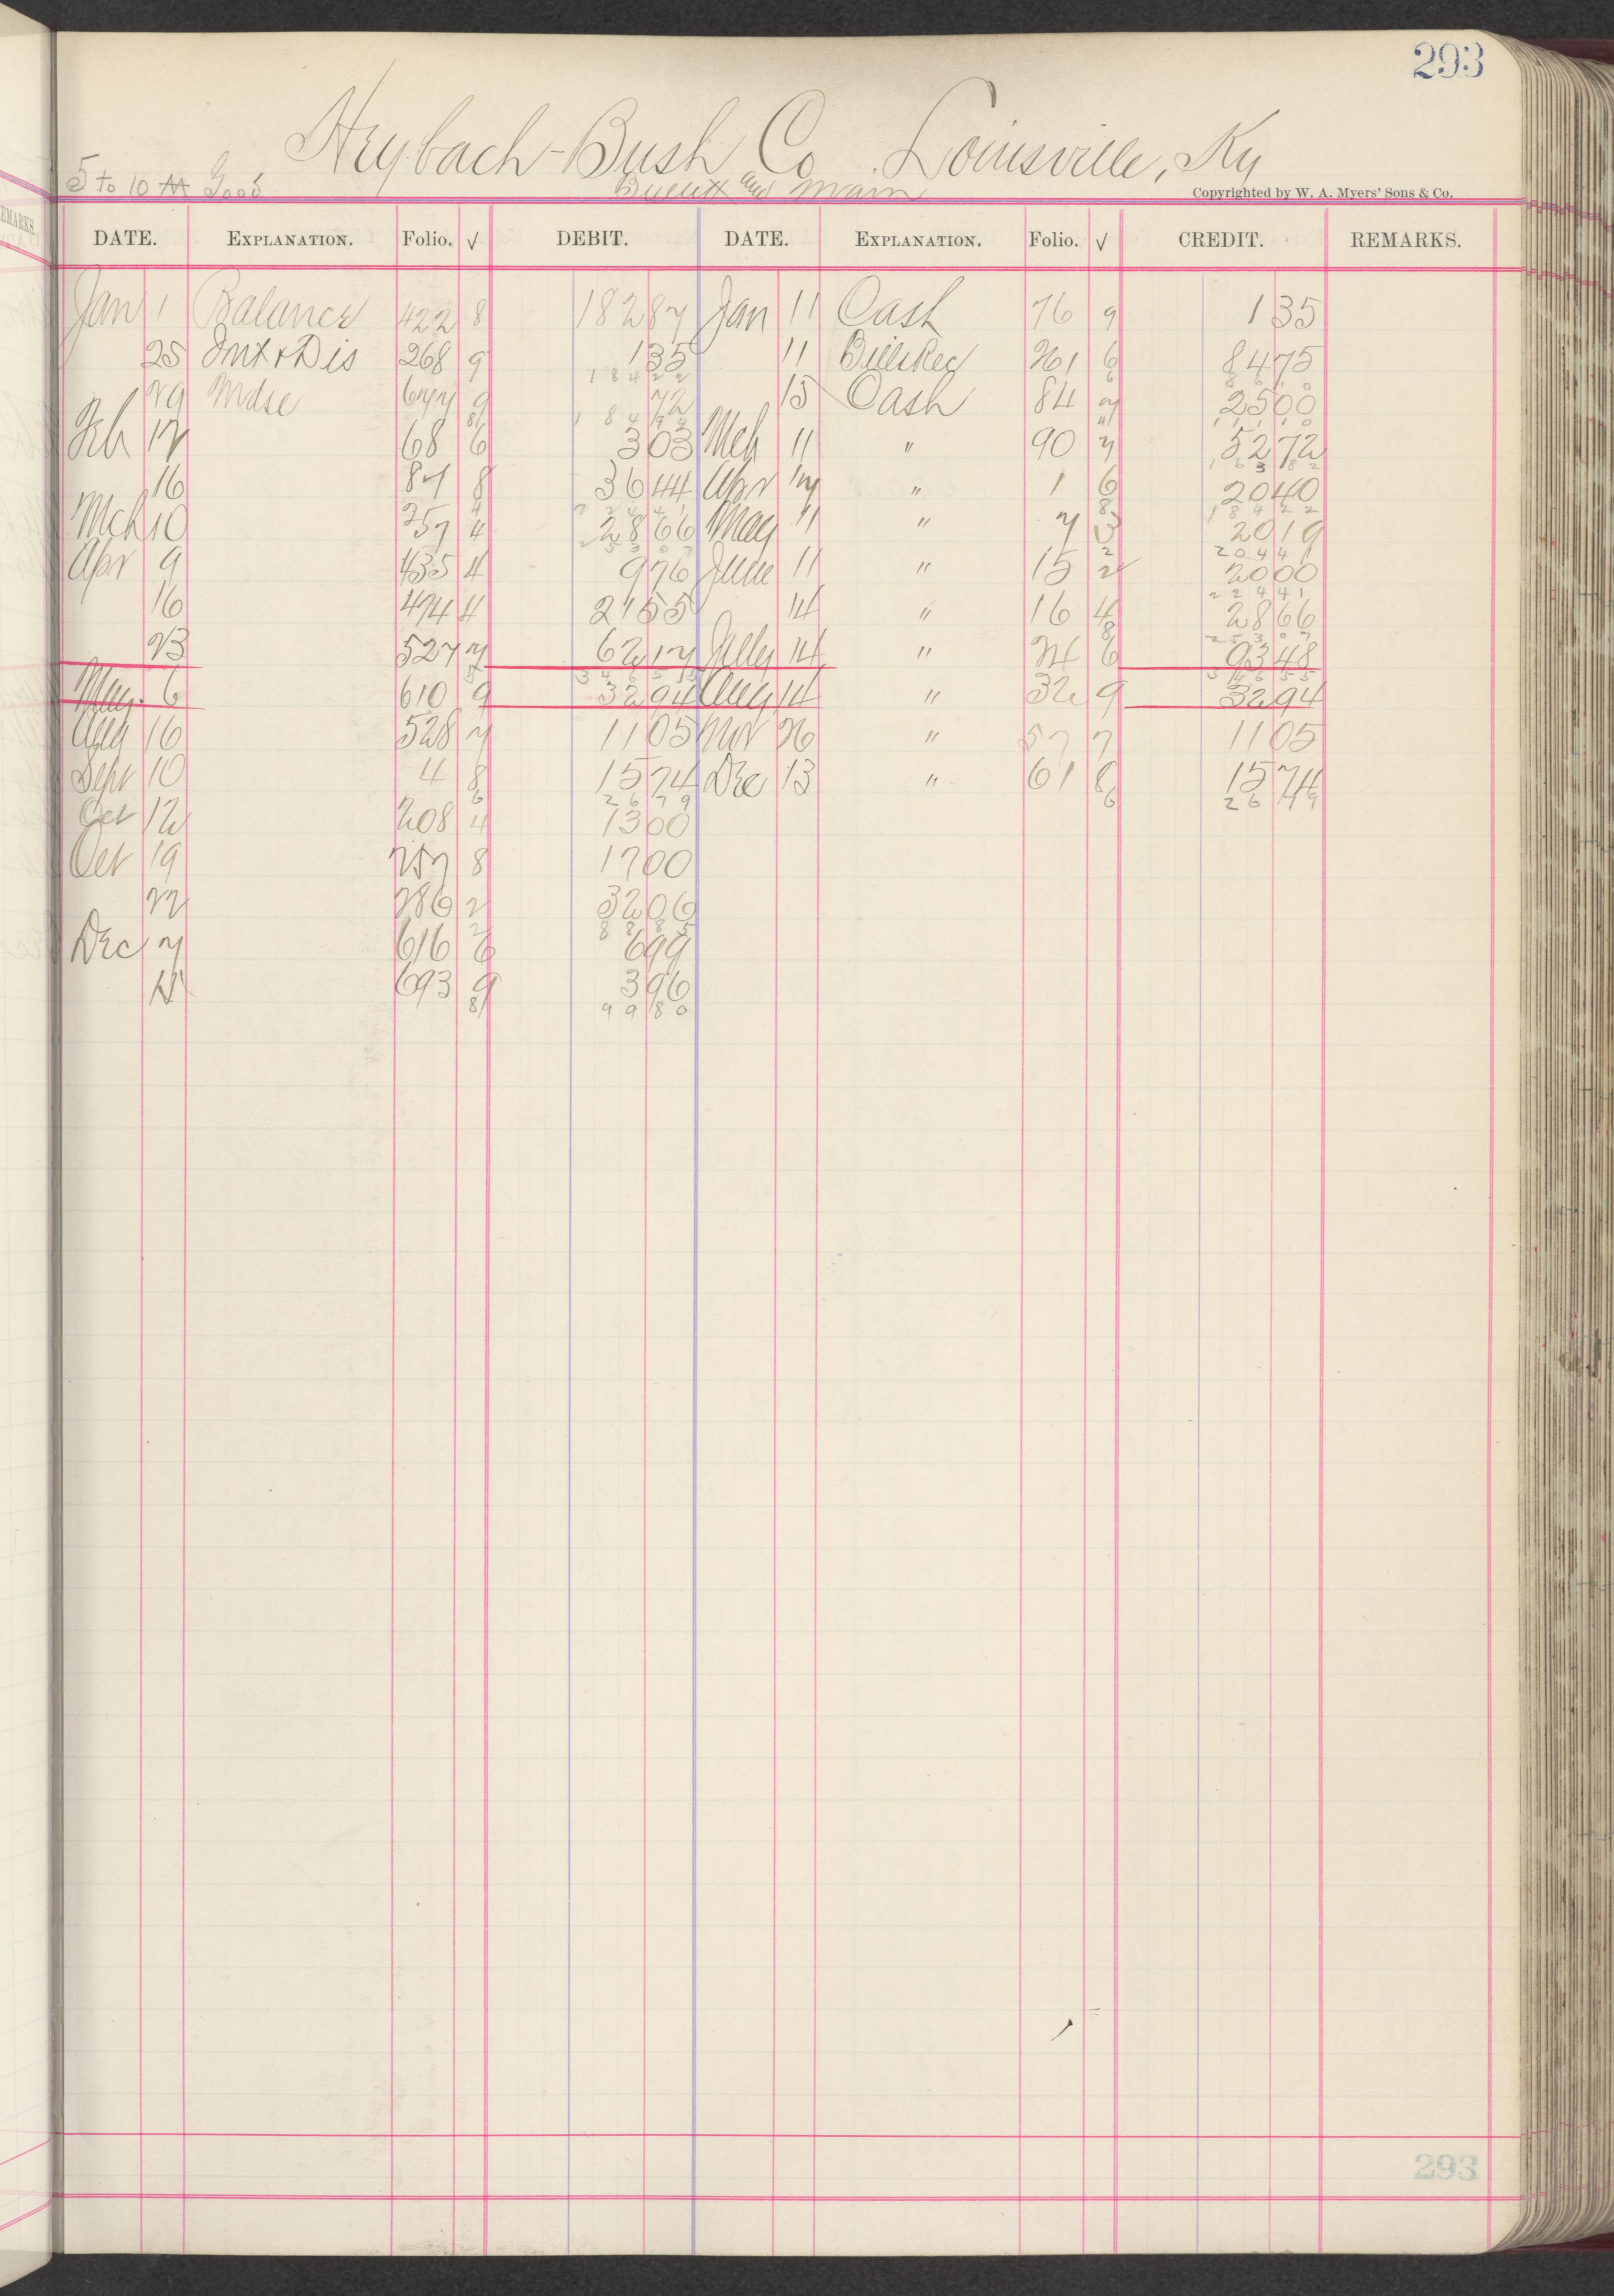 293
Heybach-Bush Co. Louisville, Ky
5 to 10 M Good
and Main
Copyrighted by W. A. Myers' Sons & Co.
DATE. EXPLANATION. Folio. √ DEBIT. DATE. EXPLANATION. Folio. √ CREDIT. REMARKS.
Jan 1 Balance 422 8 18287 Jan 11 Cash 76 9 135
25 Int & Dis 268 9 135 11 Bills Rec 261 6 8475
18422
29 Mdse 9 72 15 Cash 84 7 2500
Feb 17 68 6 303 Mch 11 " 90 7 5272
16 87 8 3644 Apr 14 " 1 6 2040
18422
Mch 10 257 4 2866 May 11 " 7 3 2019
20441
Apr 9 435 4 976 June 11 " 15 2 2000
22441
16 474 4 2155 14 " 16 4 2866
25307
23 527 7 6217 July 14 " 24 6 9348
34655
May 6 610 9 3294 Aug 14 " 32 9 3294
Aug 16 528 7 1105 Nov 26 " 57 7 1105
Sept 10 4 8 1574 Dec 13 " 61 8 1574
2679 2679
Oct 12 208 4 1300
Oct 19 257 8 1700
22 286 2 3206
8885
Dec 7 616 8 699
11 693 9 396
9980
293